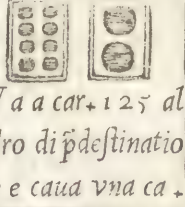 Va a car. 125 al
ro di p̄deſtinatio
e caua vna ca.